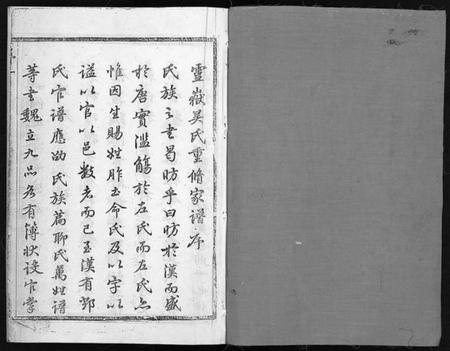 靈嶽吳氏重脩家譜序
氏族之書曷昉乎曰昉於漢而盛
於唐實濫觴於左氏而左氏亦
惟因生賜姓胙土命氏及以字以
謚以官以邑數者而已至漢有鄧
氏官譜應劭氏族篇聊氏萬姓譜
等書魏立九品名有簿狀設官掌